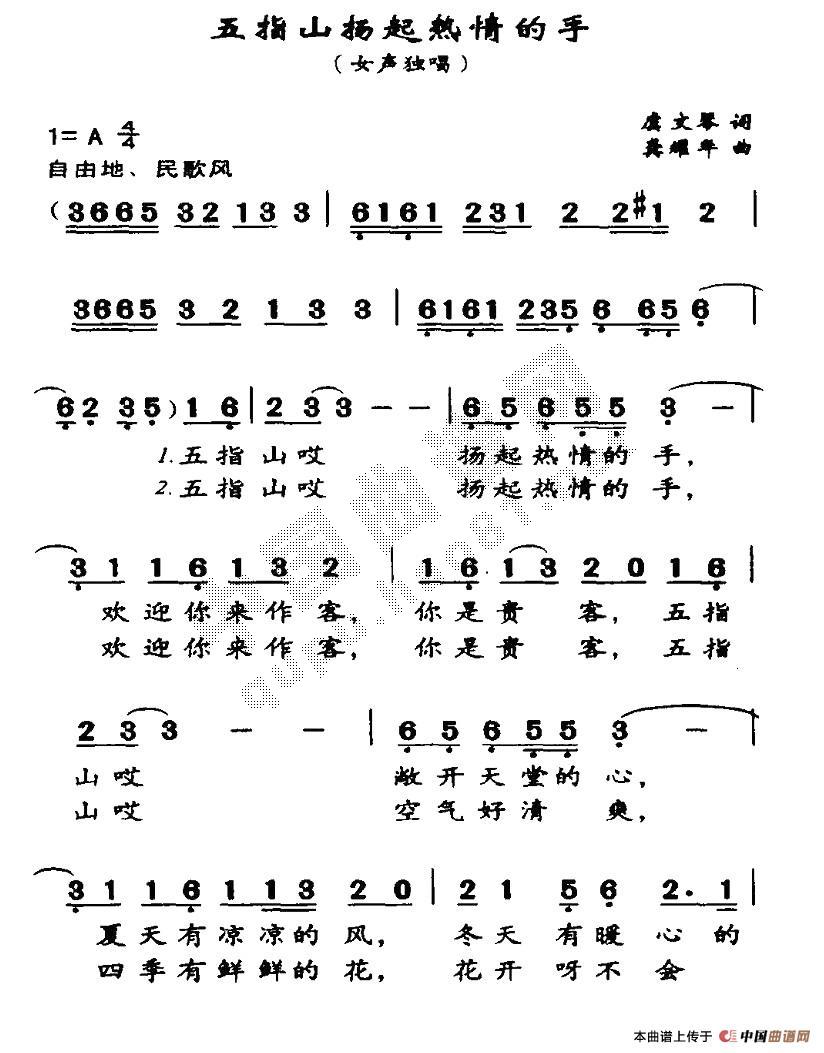 五指山扬起热情的手
（女声独唱）
1= A 4/4
虞文琴 词
龚耀年 曲
自由地、民歌风
（3665 32 133 3 | 6161 231 2 2#1 2 |
3665 3 2 1 3 3 | 6161 235 6 65 6 |
62 35）16 | 233 — — | 65 655 3 — |
1.五指山哎 扬起热情的手，
2.五指山哎 扬起热情的手，
31 16 13 2 | 16· 13 20 16 |
欢迎你来作客，你是贵客，五指
欢迎你来作客，你是贵客，五指
233 — — | 65 655 3 — |
山哎 敞开天堂的心，
山哎 空气好清爽，
31 16 113 20 | 21 56 2· 1 |
夏天有凉凉的风，冬天有暖心的
四季有鲜鲜的花，花开呀不会
本曲谱上传于 中国曲谱网